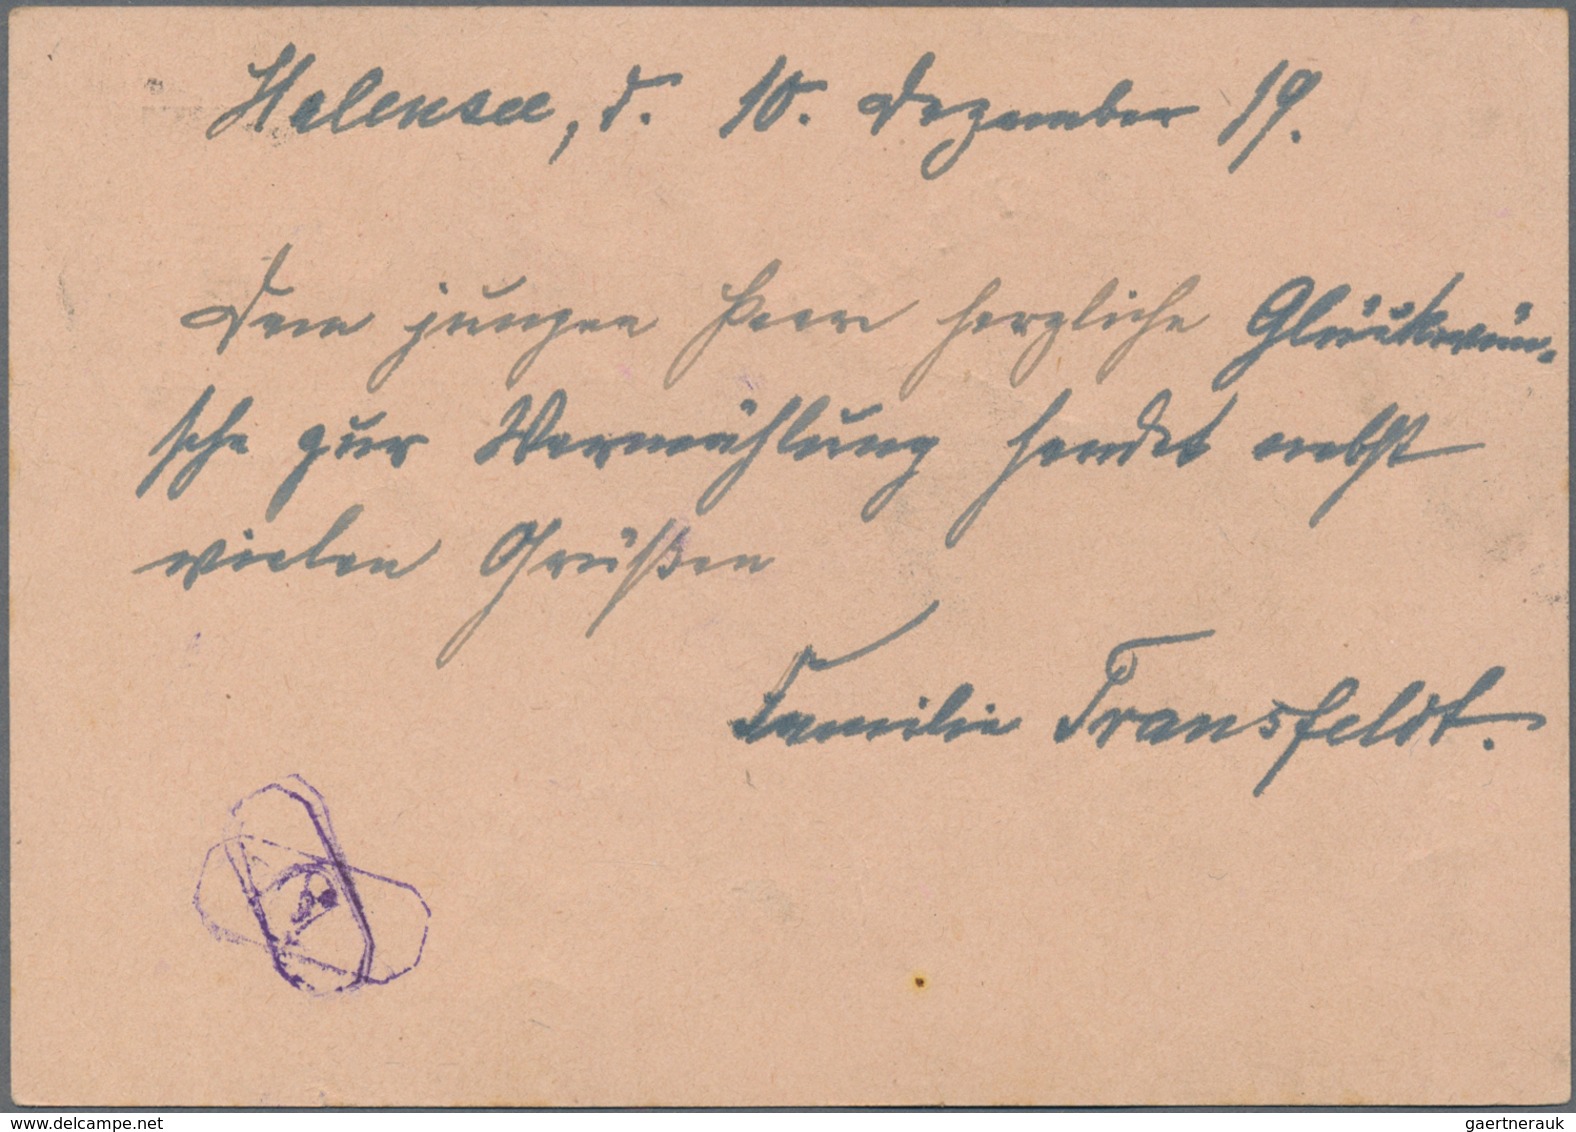 Halensee, d. 10. Dezember 19.
Dem jungen Paare herzliche Glückwün-
sche zur Vermählung sendet nebst
vielen Grüßen
Familie Transfeldt.
www.delcampe.net
gaertnerauk